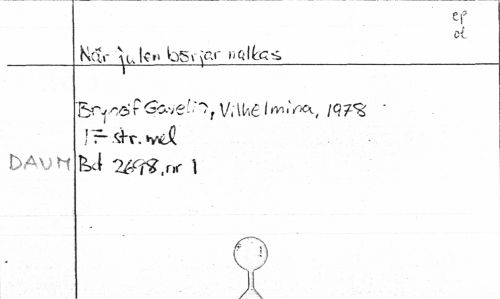 ep
ot
När julen börjar nalkas
Brynolf Gavelin, Vilhelmina, 1978
17 str. mel
DAUM Bd 2698, nr 1